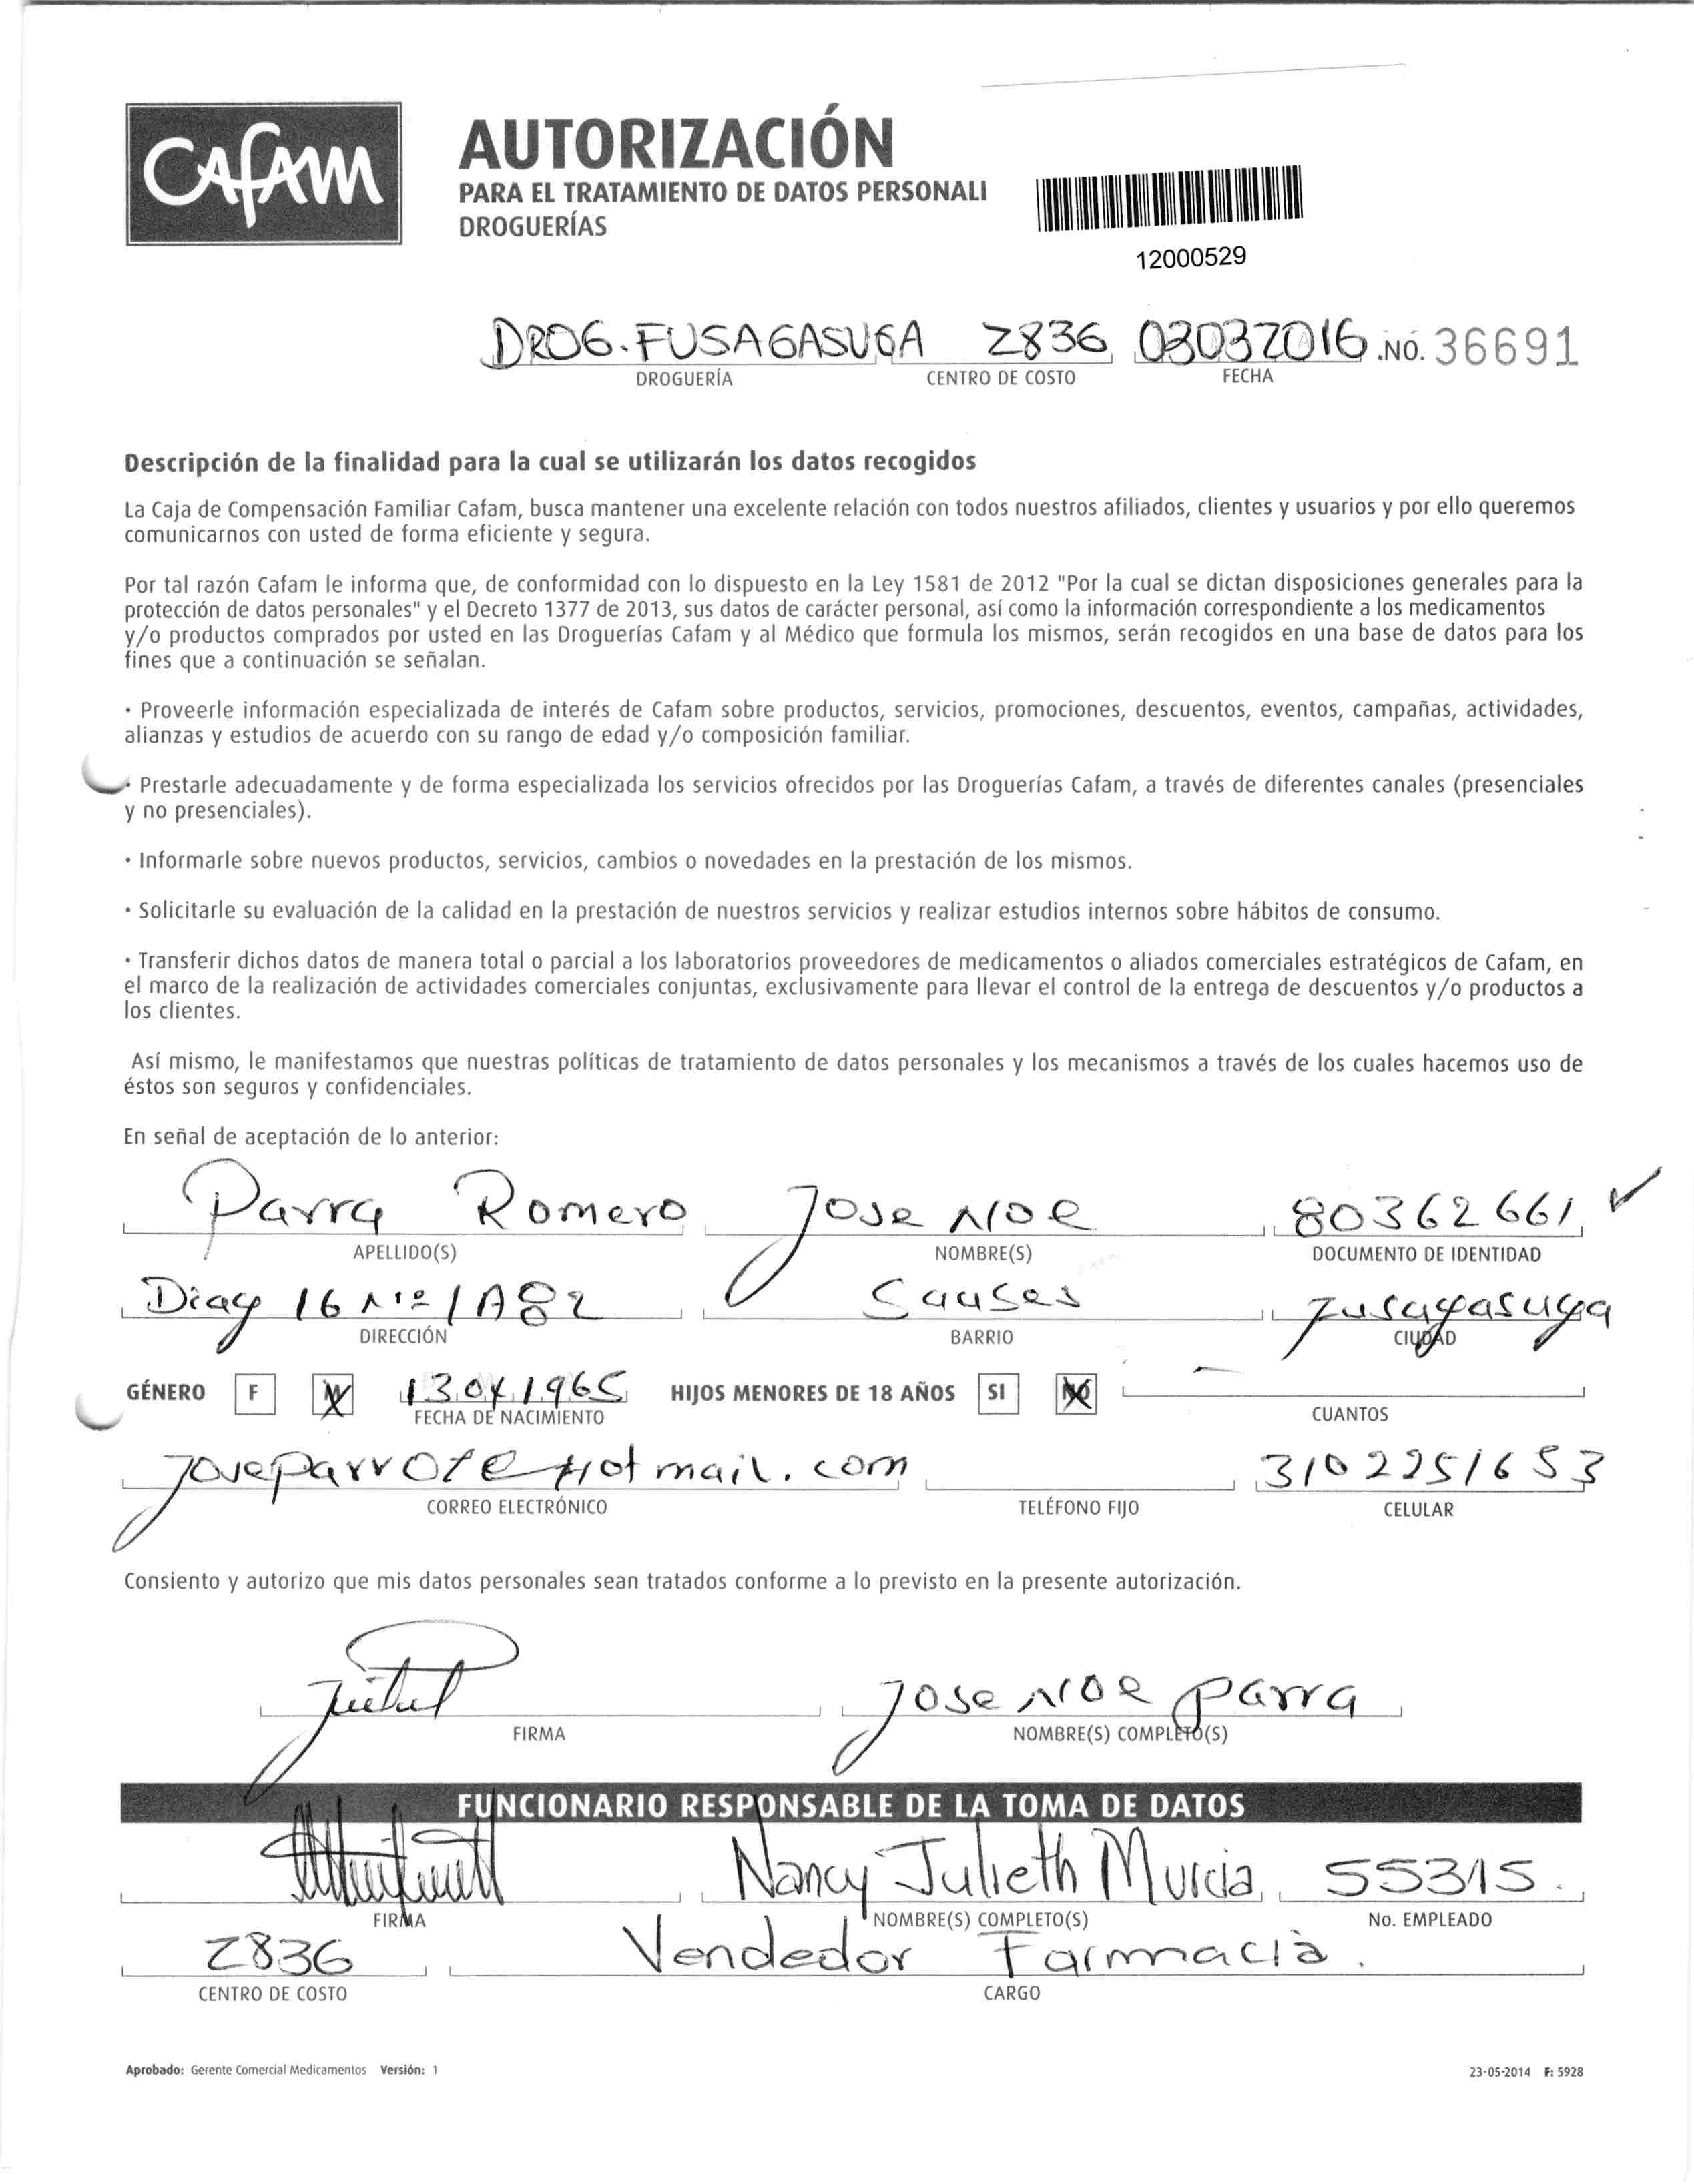 Cafam
AUTORIZACIÓN
PARA EL TRATAMIENTO DE DATOS PERSONALI
DROGUERÍAS
12000529
DROG. FUSAGASUGA 2836 03032016 .NO. 36691
DROGUERÍA CENTRO DE COSTO FECHA
Descripción de la finalidad para la cual se utilizarán los datos recogidos
La Caja de Compensación Familiar Cafam, busca mantener una excelente relación con todos nuestros afiliados, clientes y usuarios y por ello queremos
comunicarnos con usted de forma eficiente y segura.
Por tal razón Cafam le informa que, de conformidad con lo dispuesto en la Ley 1581 de 2012 "Por la cual se dictan disposiciones generales para la
protección de datos personales" y el Decreto 1377 de 2013, sus datos de carácter personal, así como la información correspondiente a los medicamentos
y/o productos comprados por usted en las Droguerías Cafam y al Médico que formula los mismos, serán recogidos en una base de datos para los
fines que a continuación se señalan.
· Proveerle información especializada de interés de Cafam sobre productos, servicios, promociones, descuentos, eventos, campañas, actividades,
alianzas y estudios de acuerdo con su rango de edad y/o composición familiar.
· Prestarle adecuadamente y de forma especializada los servicios ofrecidos por las Droguerías Cafam, a través de diferentes canales (presenciales
y no presenciales).
· Informarle sobre nuevos productos, servicios, cambios o novedades en la prestación de los mismos.
· Solicitarle su evaluación de la calidad en la prestación de nuestros servicios y realizar estudios internos sobre hábitos de consumo.
· Transferir dichos datos de manera total o parcial a los laboratorios proveedores de medicamentos o aliados comerciales estratégicos de Cafam, en
el marco de la realización de actividades comerciales conjuntas, exclusivamente para llevar el control de la entrega de descuentos y/o productos a
los clientes.
Así mismo, le manifestamos que nuestras políticas de tratamiento de datos personales y los mecanismos a través de los cuales hacemos uso de
éstos son seguros y confidenciales.
En señal de aceptación de lo anterior:
Parra Romero Jose Noe 80362661
APELLIDO(S) NOMBRE(S) DOCUMENTO DE IDENTIDAD
Diag 16 Nº 1A82 Sauses Fusagasuga
DIRECCIÓN BARRIO CIUDAD
GÉNERO F M 13041965 HIJOS MENORES DE 18 AÑOS SI NO
FECHA DE NACIMIENTO CUANTOS
joseparrote@hotmail.com 3102251653
CORREO ELECTRÓNICO TELÉFONO FIJO CELULAR
Consiento y autorizo que mis datos personales sean tratados conforme a lo previsto en la presente autorización.
Jose Noe Parra
FIRMA NOMBRE(S) COMPLETO(S)
FUNCIONARIO RESPONSABLE DE LA TOMA DE DATOS
Nancy Julieth Murcia 55315.
FIRMA NOMBRE(S) COMPLETO(S) No. EMPLEADO
2836 Vendedor Farmacia.
CENTRO DE COSTO CARGO
Aprobado: Gerente Comercial Medicamentos Versión: 1 23-05-2014 F: 5928